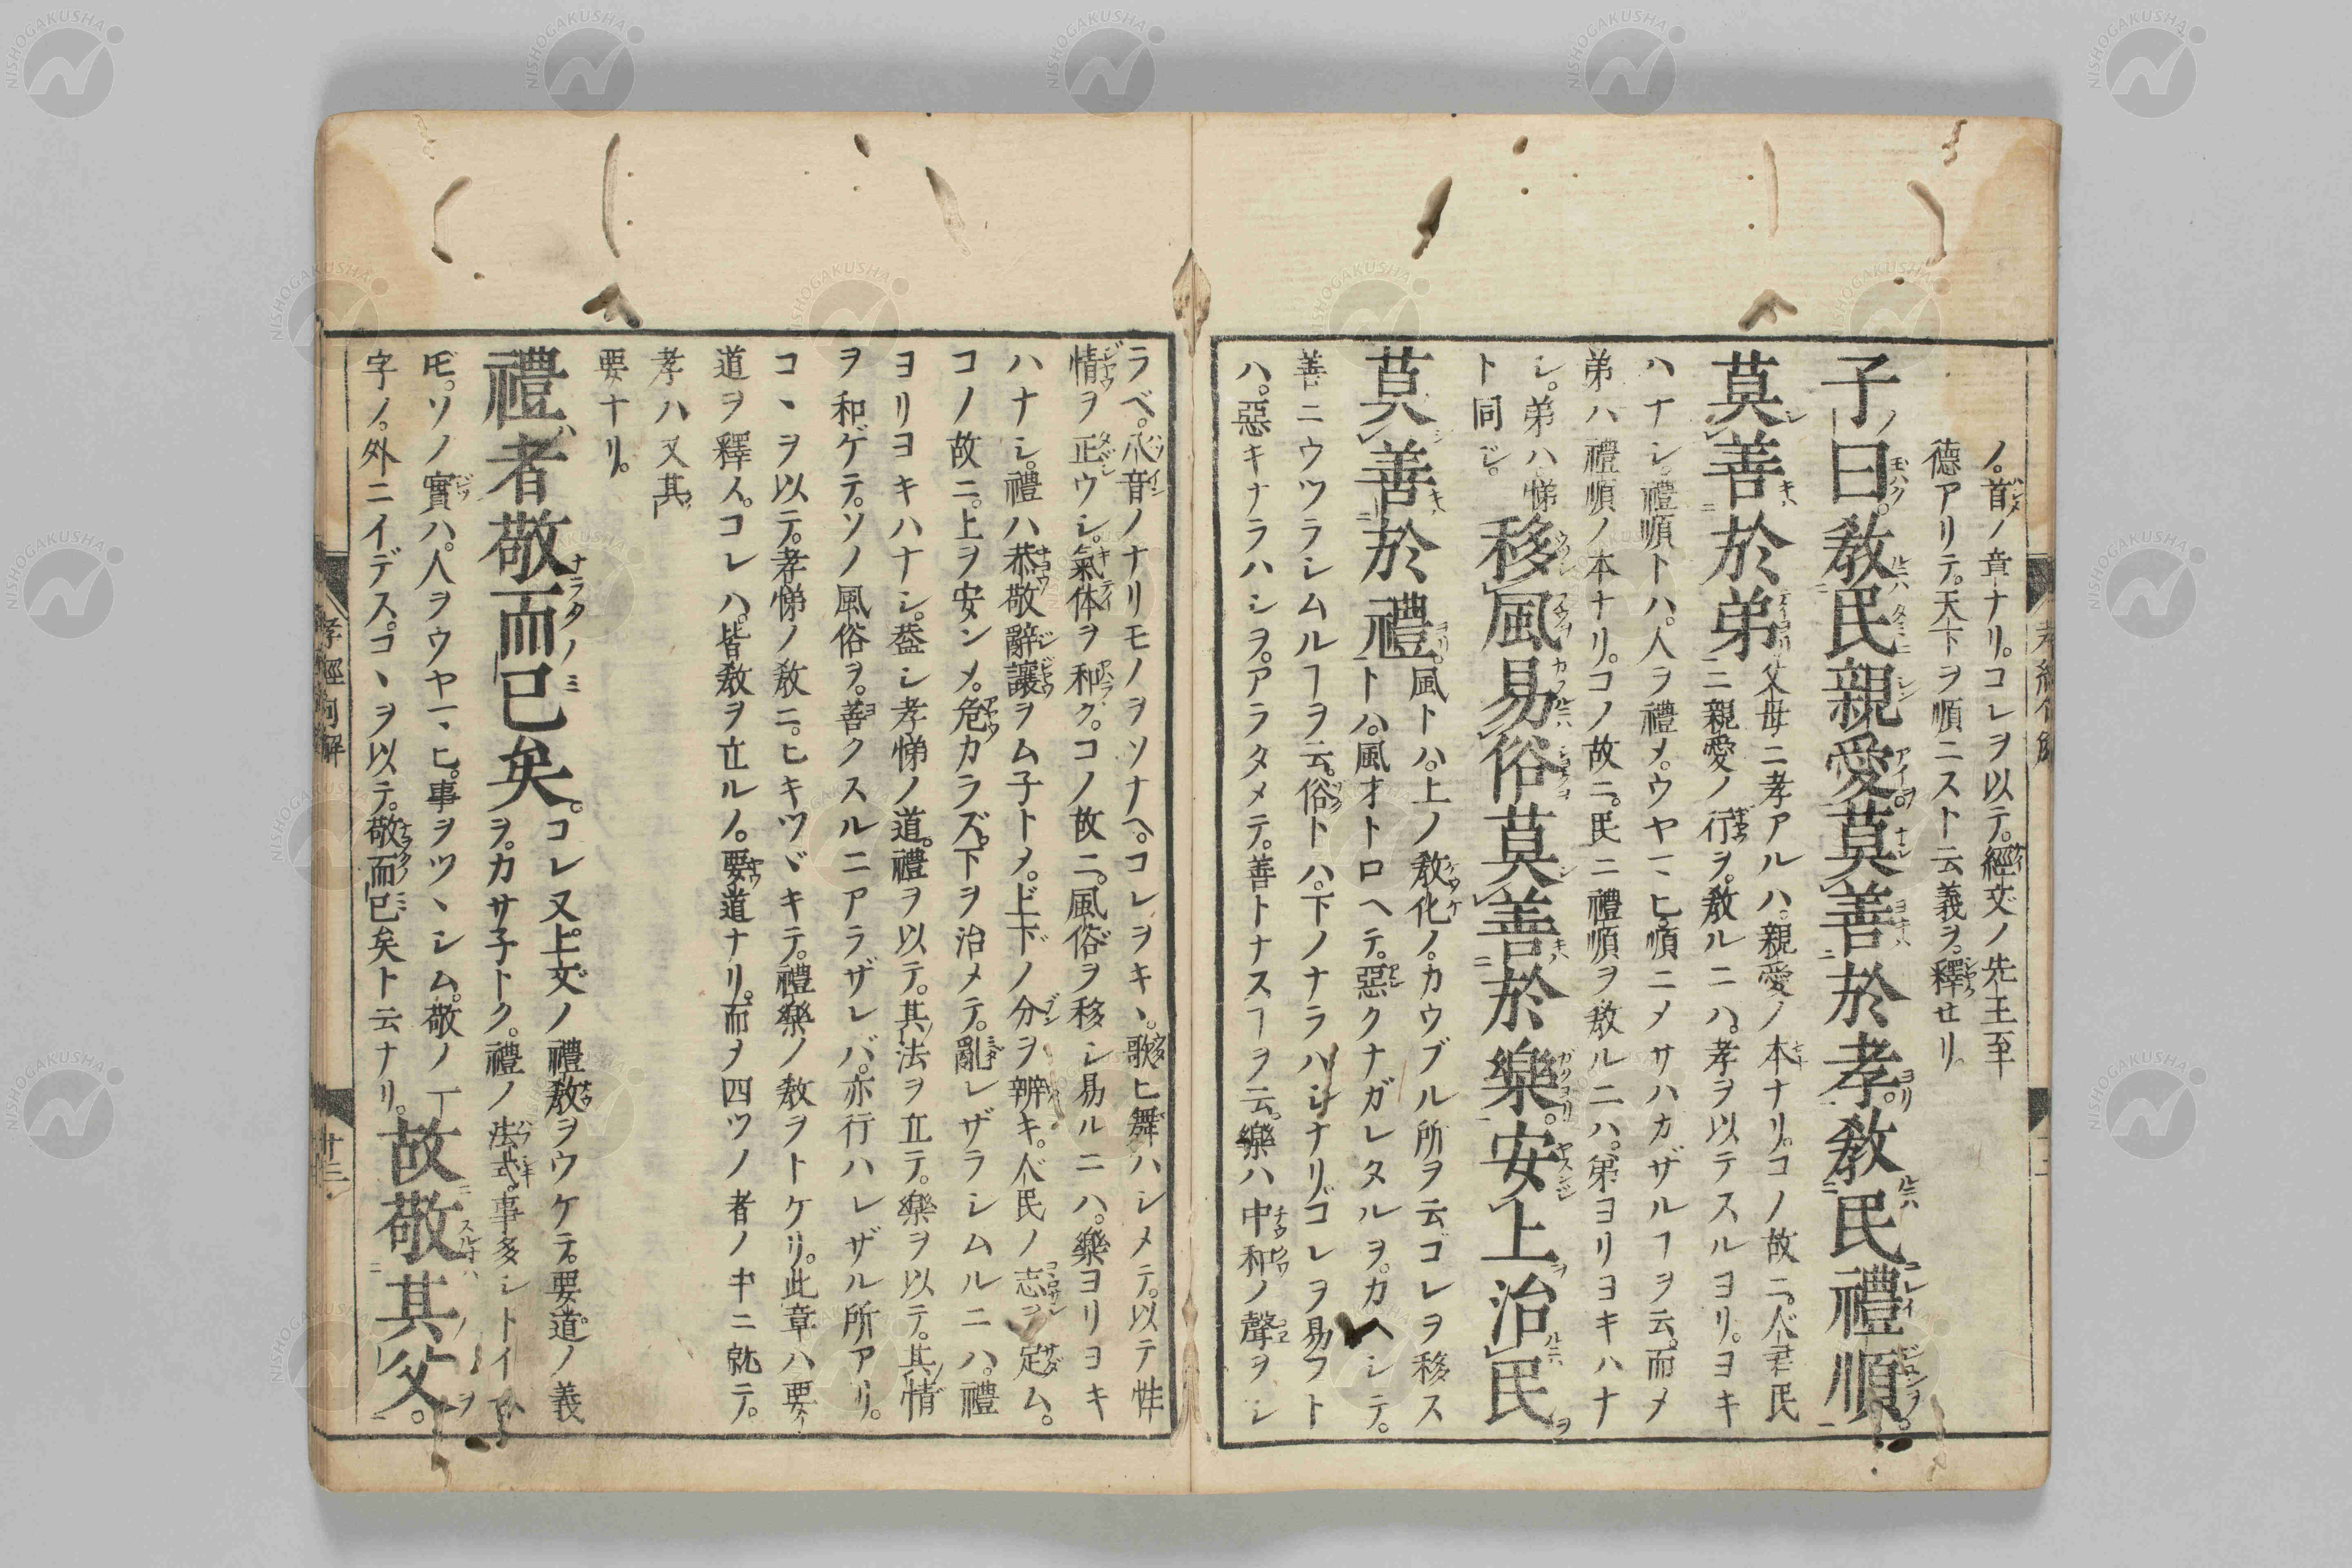 ノ。首ノ章ナリ。コレヲ以テ。經文ノ先王至
德アリテ。天下ヲ順ニスト云義ヲ。釋セリ。
子曰。敎民親愛莫善於孝。敎民禮順
莫善於弟
父母ニ孝アルハ。親愛ノ本ナリ。コノ故ニ。人君民
ニ親愛ノ行ヲ。敎ルニハ。孝ヲ以テスルヨリ。ヨキ
ハナシ。禮順トハ。人ヲ禮メ。ウヤヽヒ。順ニメサハカザルヿヲ云。而メ
弟ハ禮順ノ本ナリ。コノ故ニ。民ニ禮順ヲ敎ルニハ。弟ヨリヨキハナ
シ。弟ハ悌
ト同ジ。
移風易俗莫善於樂。安上治民
莫善於禮
風トハ。上ノ敎化ノ。カウブル所ヲ云。コレヲ移ス
トハ。風オトロヘテ。惡クナガレタルヲ。カヘシテ。
善ニウツラシムルヿヲ云。俗トハ。下ノナラハシナリ。コレヲ易フト
ハ。惡キナラハシヲ。アラタメテ。善トナスヿヲ云。樂ハ中和ノ聲ヲシ
ラベ。八音ノナリモノヲソナヘ。コレヲキヽ。歌ヒ舞ハシメテ。以テ性
情ヲ正ウシ。氣体ヲ和ク。コノ故ニ。風俗ヲ移シ易ルニハ。樂ヨリヨキ
ハナシ。禮ハ恭敬辭讓ヲム子トメ。上下ノ分ヲ辨キ。人民ノ志ヲ定ム。
コノ故ニ。上ヲ安ンメ。危カラズ。下ヲ治メテ。亂レザラシムルニハ。禮
ヨリヨキハナシ。蓋シ孝悌ノ道。禮ヲ以テ。其法ヲ立テ。樂ヲ以テ。其情
ヲ和ゲテ。ソノ風俗ヲ。善クスルニアラザレバ。亦行ハレザル所アリ。
コヽヲ以テ。孝悌ノ敎ニ。ヒキツヾキテ。禮樂ノ敎ヲトケリ。此章ハ要
道ヲ釋ス。コレハ。皆敎ヲ立ルノ。要道ナリ。而ヲ四ツノ者ノ中ニ就テ。
孝ハ又其
要ナリ。
禮者敬而已矣。
コレ又上文ノ禮敎ヲウケテ。要道ノ義
ヲ。カサ子トク。禮ノ法式。事多シトイヘ
𪜈。ソノ實ハ。人ヲウヤヽヒ。事ヲツヽシム。敬ノ一
字ノ。外ニイデス。コヽヲ以テ。敬而已矣ト云ナリ。
故敬其父。
孝經句解
十三